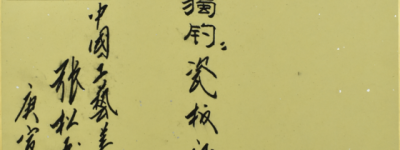 獨钓瓷板
中國工藝美
张松
庚寅